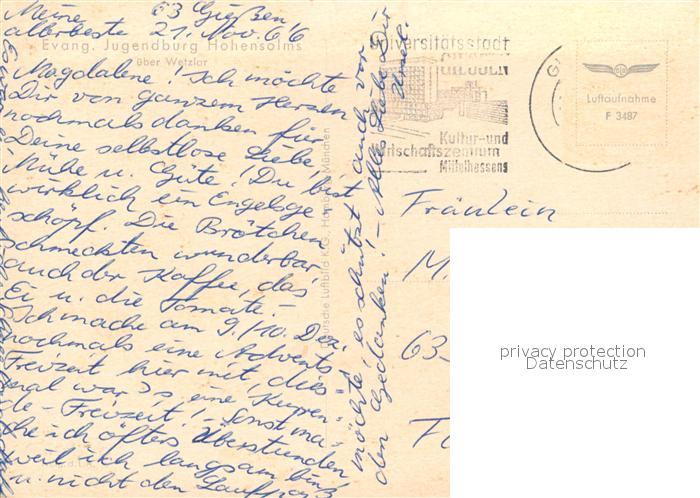 63 Gießen
Meine 21. Nov. 66
allerbeste
Evang. Jugendburg Hohensolms
über Wetzlar
Magdalene! Ich möchte
Dir von ganzem Herzen
nochmals danken für
Deine selbstlose Liebe,
Mühe u. Güte! Du bist
wirklich ein Engelsge-
schöpf. Die Brötchen
schmeckten wunderbar,
auch der Kaffee, das
Ei u. die Tomate. -
Ich mache am 9./10. Dez.
nochmals eine Advents-
Freizeit hier mit, dies-
mal war's eine
Freizeit! - Sonst ma-
che ich öfters Überstunden
weil ich langsam bin
u. nicht den
möchte, es schützt auch vor
den Gedanken! - Alles Liebe Dir
Ursel.
Deutsche Luftbild K.G. Hamburg München
Universitätsstadt
GIESSEN
Kultur- und
Wirtschaftszentrum
Mittelhessens
Luftaufnahme
F 3487
Fräulein
M
63-
privacy protection
Datenschutz